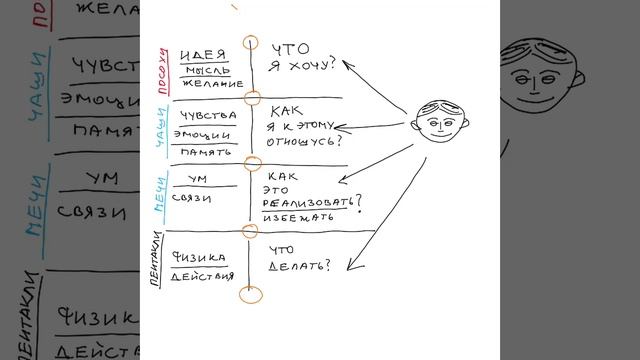 ПОСОХИ
ИДЕЯ
МЫСЛЬ
ЖЕЛАНИЕ
ЧТО
Я ХОЧУ?
ЧАШИ
ЧУВСТВА
ЭМОЦИИ
ПАМЯТЬ
КАК
Я К ЭТОМУ
ОТНОШУСЬ?
МЕЧИ
УМ
СВЯЗИ
КАК
ЭТО
РЕАЛИЗОВАТЬ?
ИЗБЕЖАТЬ
ПЕНТАКЛИ
ФИЗИКА
ДЕЙСТВИЯ
ЧТО
ДЕЛАТЬ?
ПОСОХИ
ЖЕЛАНИЕ
ЧАШИ
ЧУВСТВА
ЭМОЦИИ
ПАМЯТЬ
МЕЧИ
УМ
СВЯЗИ
ПЕНТАКЛИ
ФИЗИКА
ДЕЙСТВИЯ